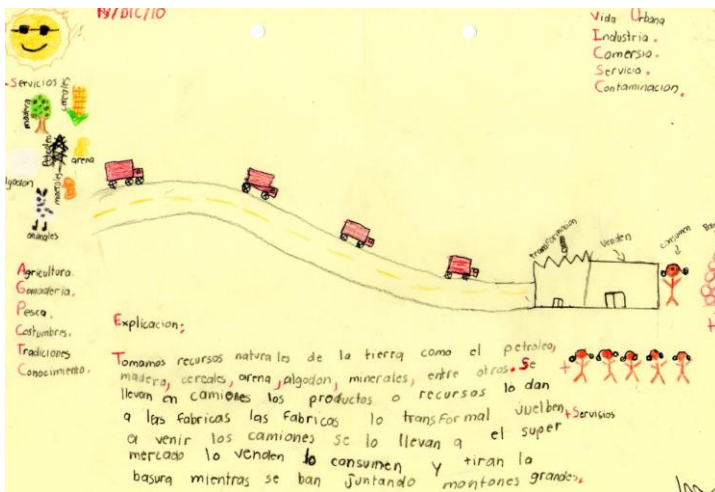 19/DIC/10
Vida Urbana
Industria.
Comersio.
Servicio.
Contaminacion.
-Servicios
cereales
madera
Petroleo
arena
minerales
algodon
animales
Agricultura.
Ganaderia.
Pesca.
Costumbres.
Tradiciones
Conocimiento.
transformacion
Venden
consumen
Explicacion:
Tomamos recursos naturales de la tierra como el petroleo,
madera, cereales, arena, algodon, minerales, entre otros. Se
llevan en camiones los productos o recursos lo dan
a las fabricas las fabricas lo transformal vuelben
a venir los camiones se lo llevan a el super
mercado lo venden lo consumen y tiran la
basura mientras se ban juntando montones grandes.
+
+ Servicios